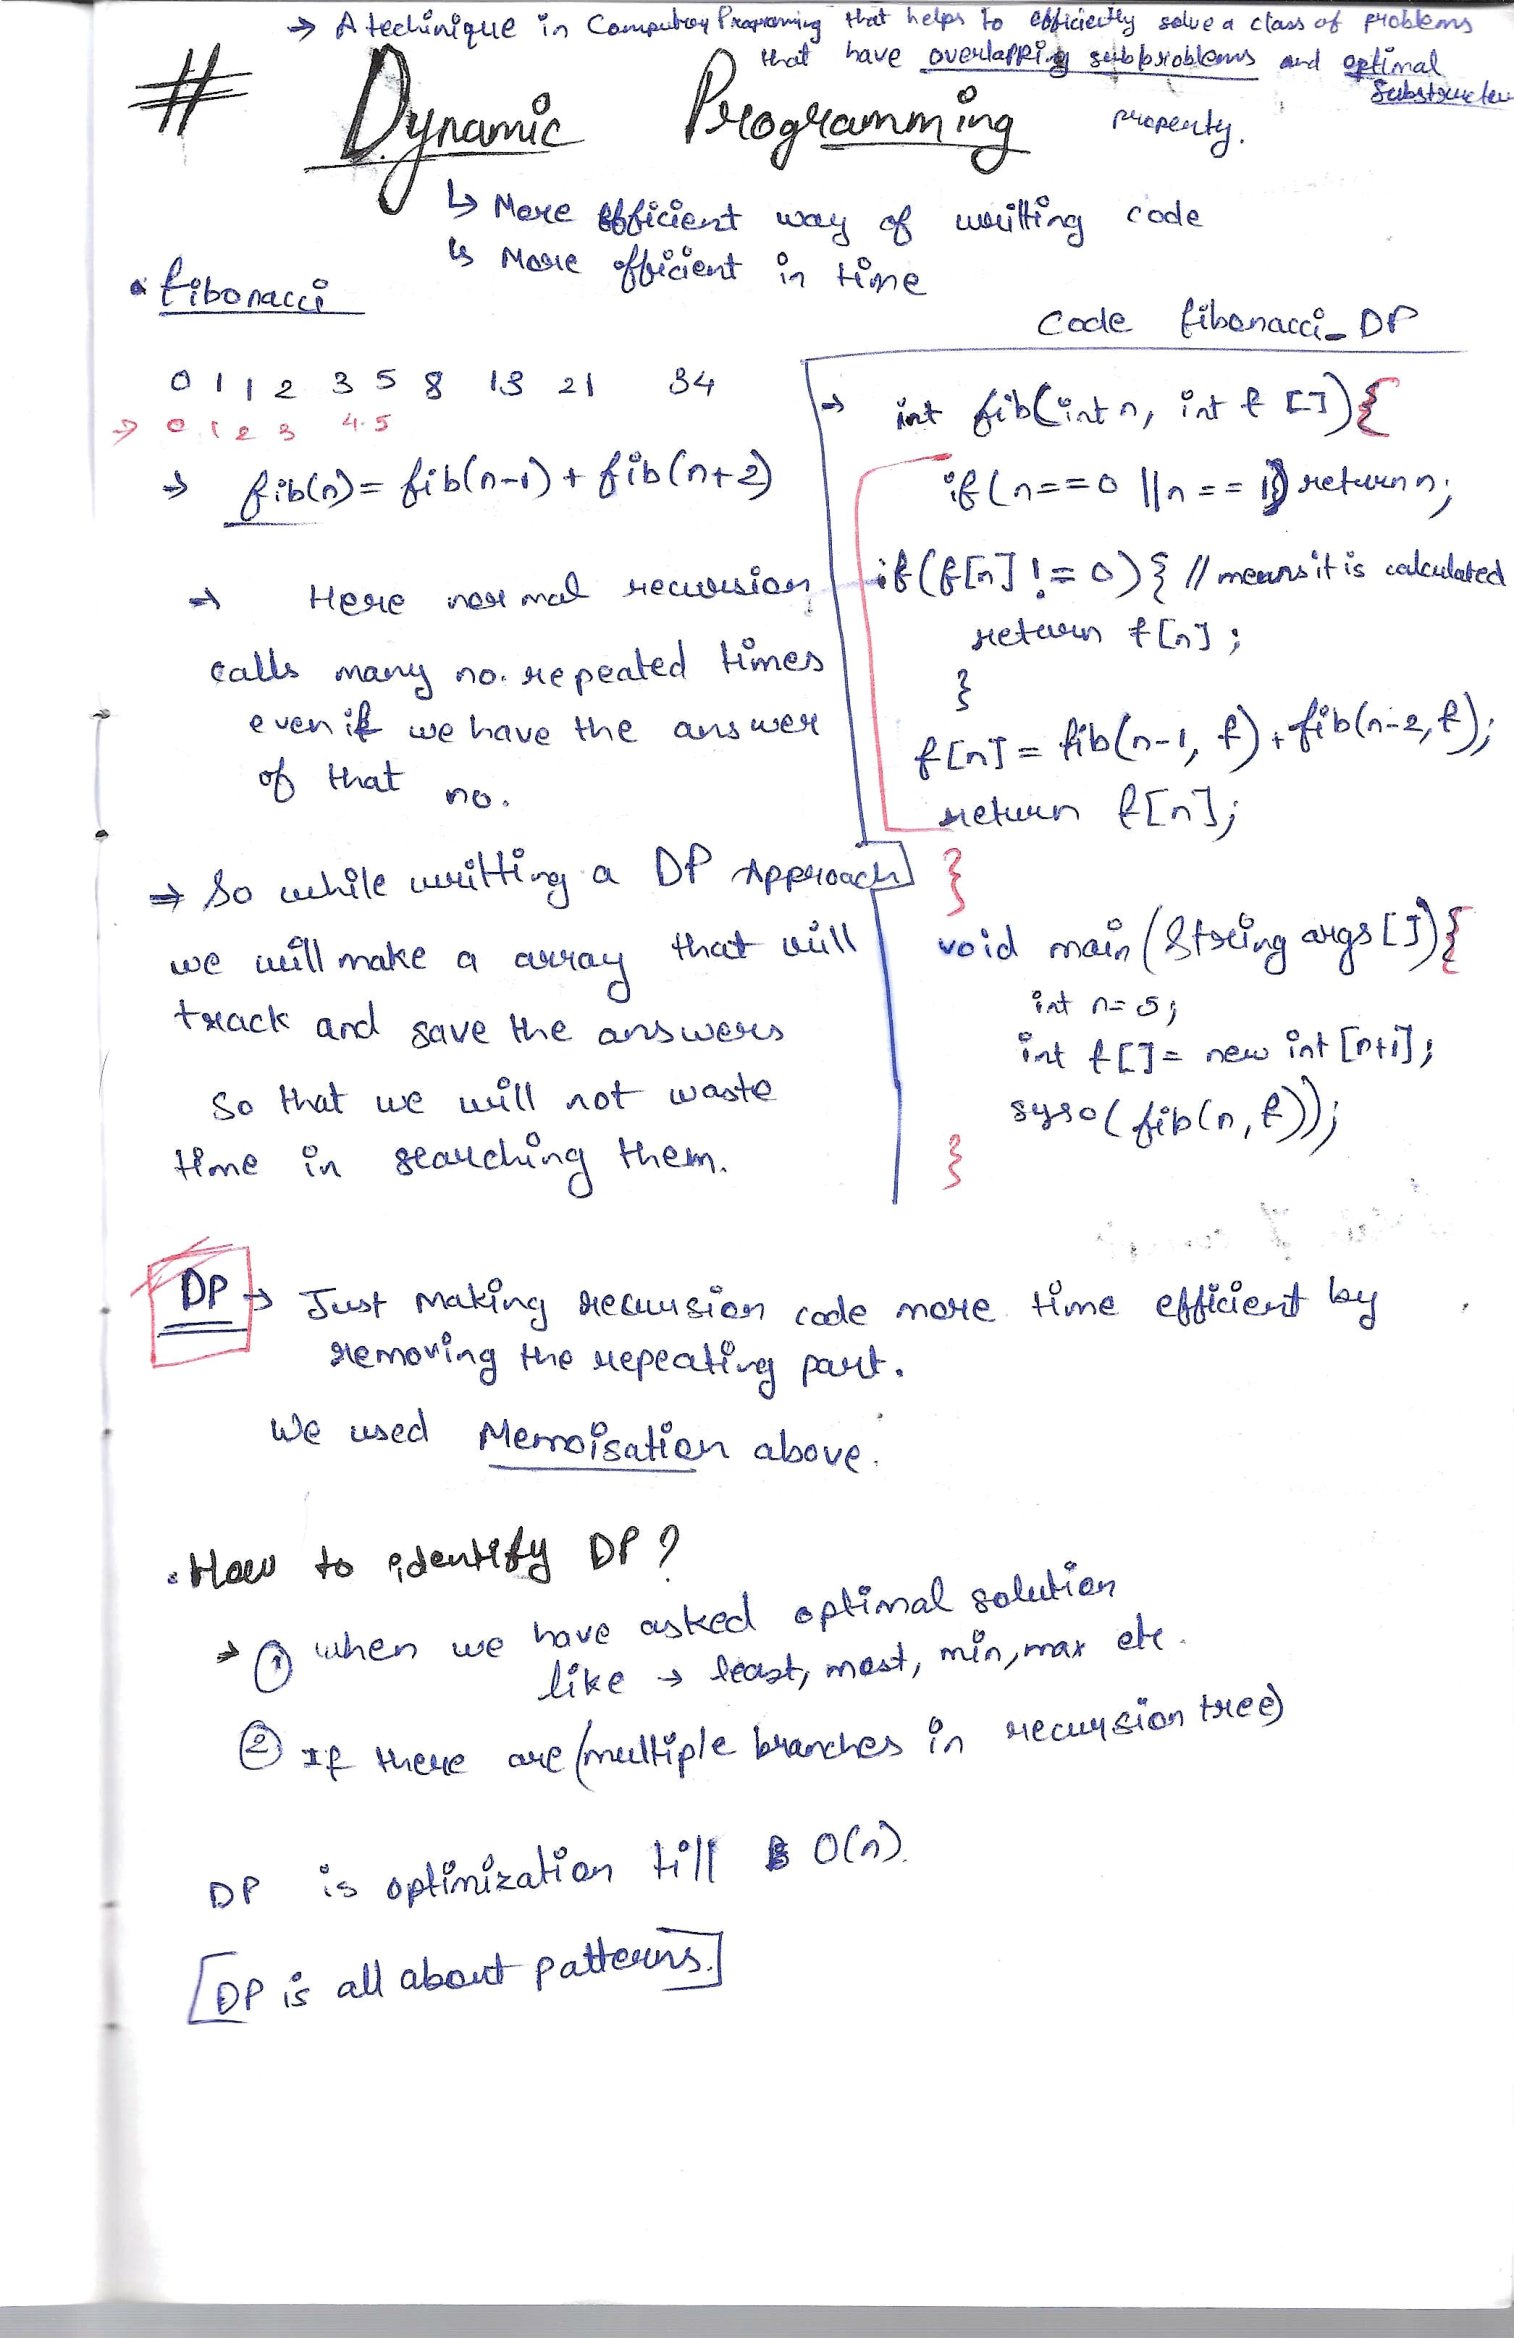 → A techinique in Computer Programing that helps to efficiently solve a class of problems
that have overlapping subproblems and optimal
Substructure
property.
# Dynamic Programming
↳ More efficient way of writting code
↳ More efficient in time
• fibonacci
0 1 1 2 3 5 8 13 21 34
→ 0 1 2 3 4 5
→ fib(n) = fib(n-1) + fib(n+2)
→ Here normal recursion
calls many no. repeated times
even if we have the answer
of that no.
⇒ So while writting a DP Approach
we will make a array that will
track and save the answers
So that we will not waste
time in searching them.
Code fibonacci_DP
→ int fib(int n, int f []){
if(n==0 ||n == 1) return n;
if(f[n] != 0){ // means it is calculated
return f[n];
}
f[n] = fib(n-1, f) + fib(n-2, f);
return f[n];
}
void main (String args []){
int n= 5;
int f[]= new int [n+1];
syso(fib(n, f));
}
DP → Just making recursion code more time efficient by
removing the repeating part.
We used Memoisation above.
• How to identify DP ?
→ ① when we have asked optimal solution
like → least, most, min, max etc.
② If there are (multiple branches in recursion tree)
DP is optimization till O(n).
[DP is all about patterns.]